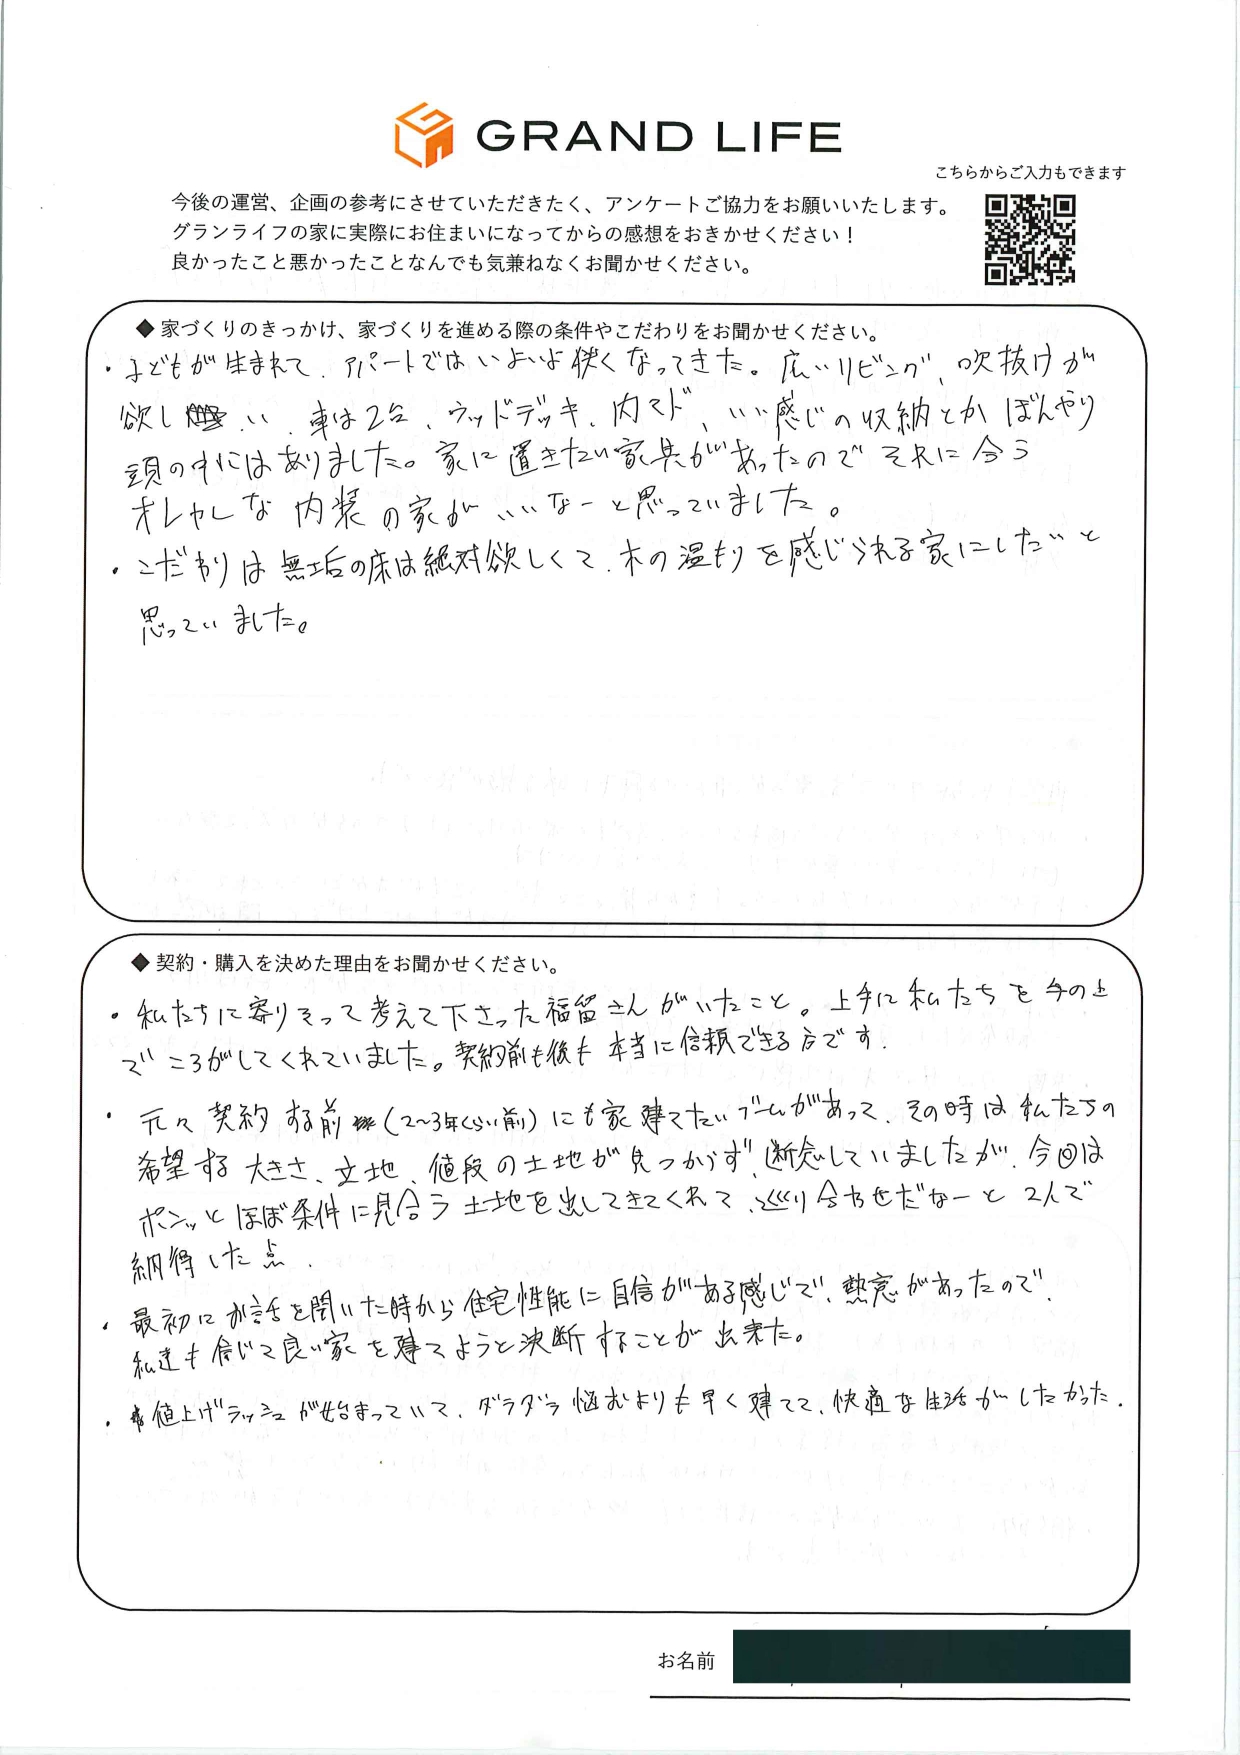 GRAND LIFE
こちらからご入力もできます
今後の運営、企画の参考にさせていただきたく、アンケートご協力をお願いいたします。
グランライフの家に実際にお住まいになってからの感想をおきかせください！
良かったこと悪かったことなんでも気兼ねなくお聞かせください。
◆家づくりのきっかけ、家づくりを進める際の条件やこだわりをお聞かせください。
・子どもが生まれて、アパートではいよいよ狭くなってきた。広いリビング、吹抜けが
欲しい、車は2台、ウッドデッキ、内マド、いい感じの収納とかぼんやり
頭の中にはありました。家に置きたい家具があったのでそれに合う
オシャレな内装の家がいいなーと思っていました。
・こだわりは無垢の床は絶対欲しくて、木の温もりを感じられる家にしたいと
思っていました。
◆契約・購入を決めた理由をお聞かせください。
・私たちに寄りそって考えて下さった福留さんがいたこと。上手に私たちを手の上
でころがしてくれていました。契約前も後も本当に信頼できる方です。
・元々契約する前(2〜3年くらい前)にも家建てたいブームがあって、その時は私たちの
希望する大きさ、立地、値段の土地が見つからず、断念していましたが、今回は
ポンッとほぼ条件に見合う土地を出してきてくれて、巡り合わせだなーと2人で
納得した点、
・最初にお話を聞いた時から住宅性能に自信がある感じで、熱意があったので、
私達も信じて良い家を建てようと決断することが出来た。
・値上げラッシュが始まっていて、ダラダラ悩むよりも早く建てて、快適な生活がしたかった。
お名前